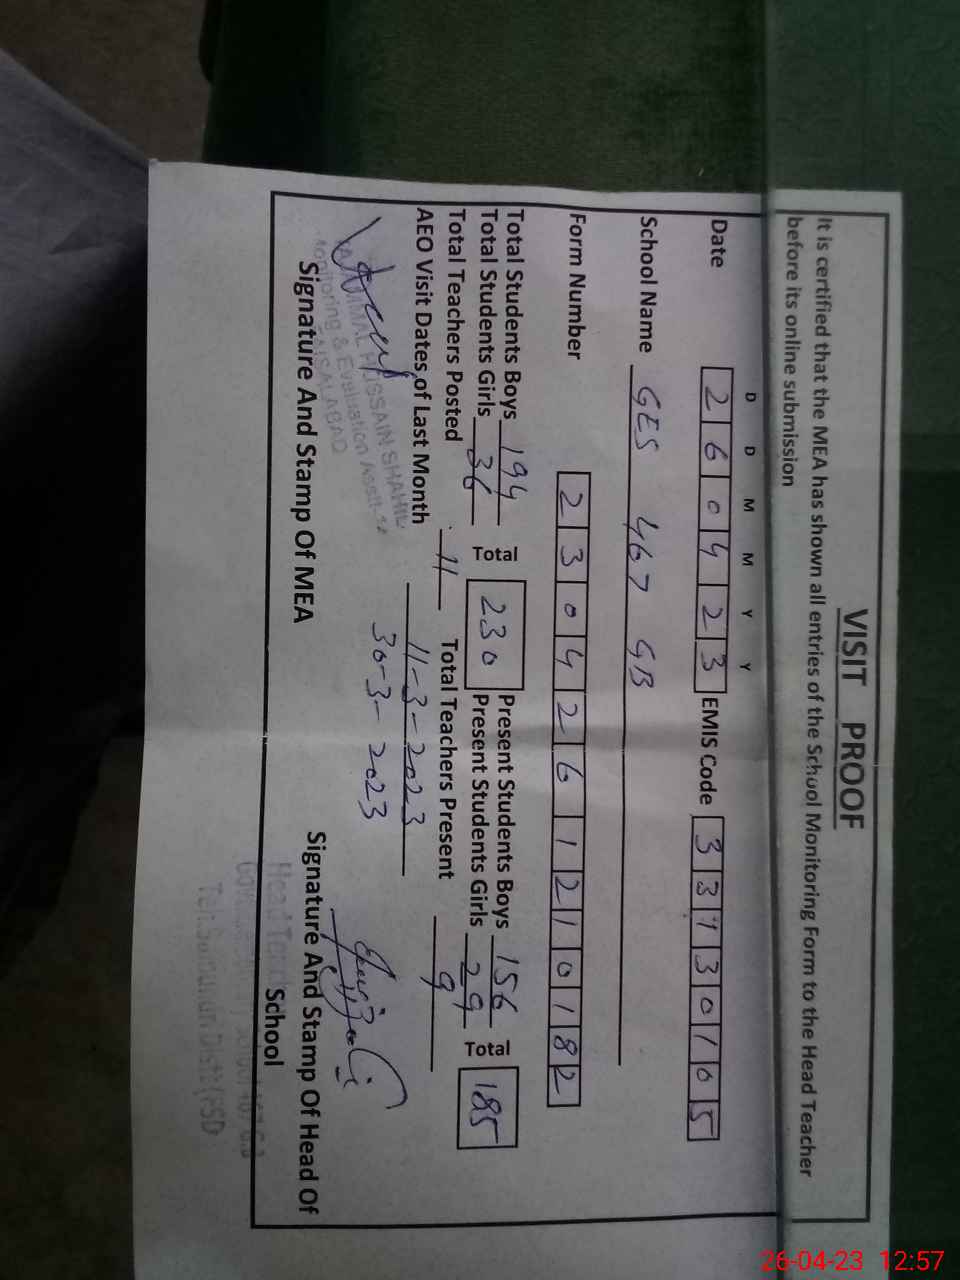 VISIT PROOF
It is certified that the MEA has shown all entries of the School Monitoring Form to the Head Teacher
before its online submission
D D M M Y Y
Date 2 6 0 4 2 3 EMIS Code 3 3 1 3 0 1 0 5
School Name GES 467 GB
Form Number 2 3 0 4 2 6 1 2 1 0 1 8 2
Total Students Boys 194 Present Students Boys 156
Total 230 Total 185
Total Students Girls 36 Present Students Girls 29
Total Teachers Posted 11 Total Teachers Present 9
AEO Visit Dates of Last Month 11-3-2023
30-3-2023
HUSSAIN SHAHID
Monitoring & Evaluation Asstt
FAISALABAD
Signature And Stamp Of MEA
Signature And Stamp Of Head Of
School
Head Teacher
School 467 G.B
26-04-23 12:57